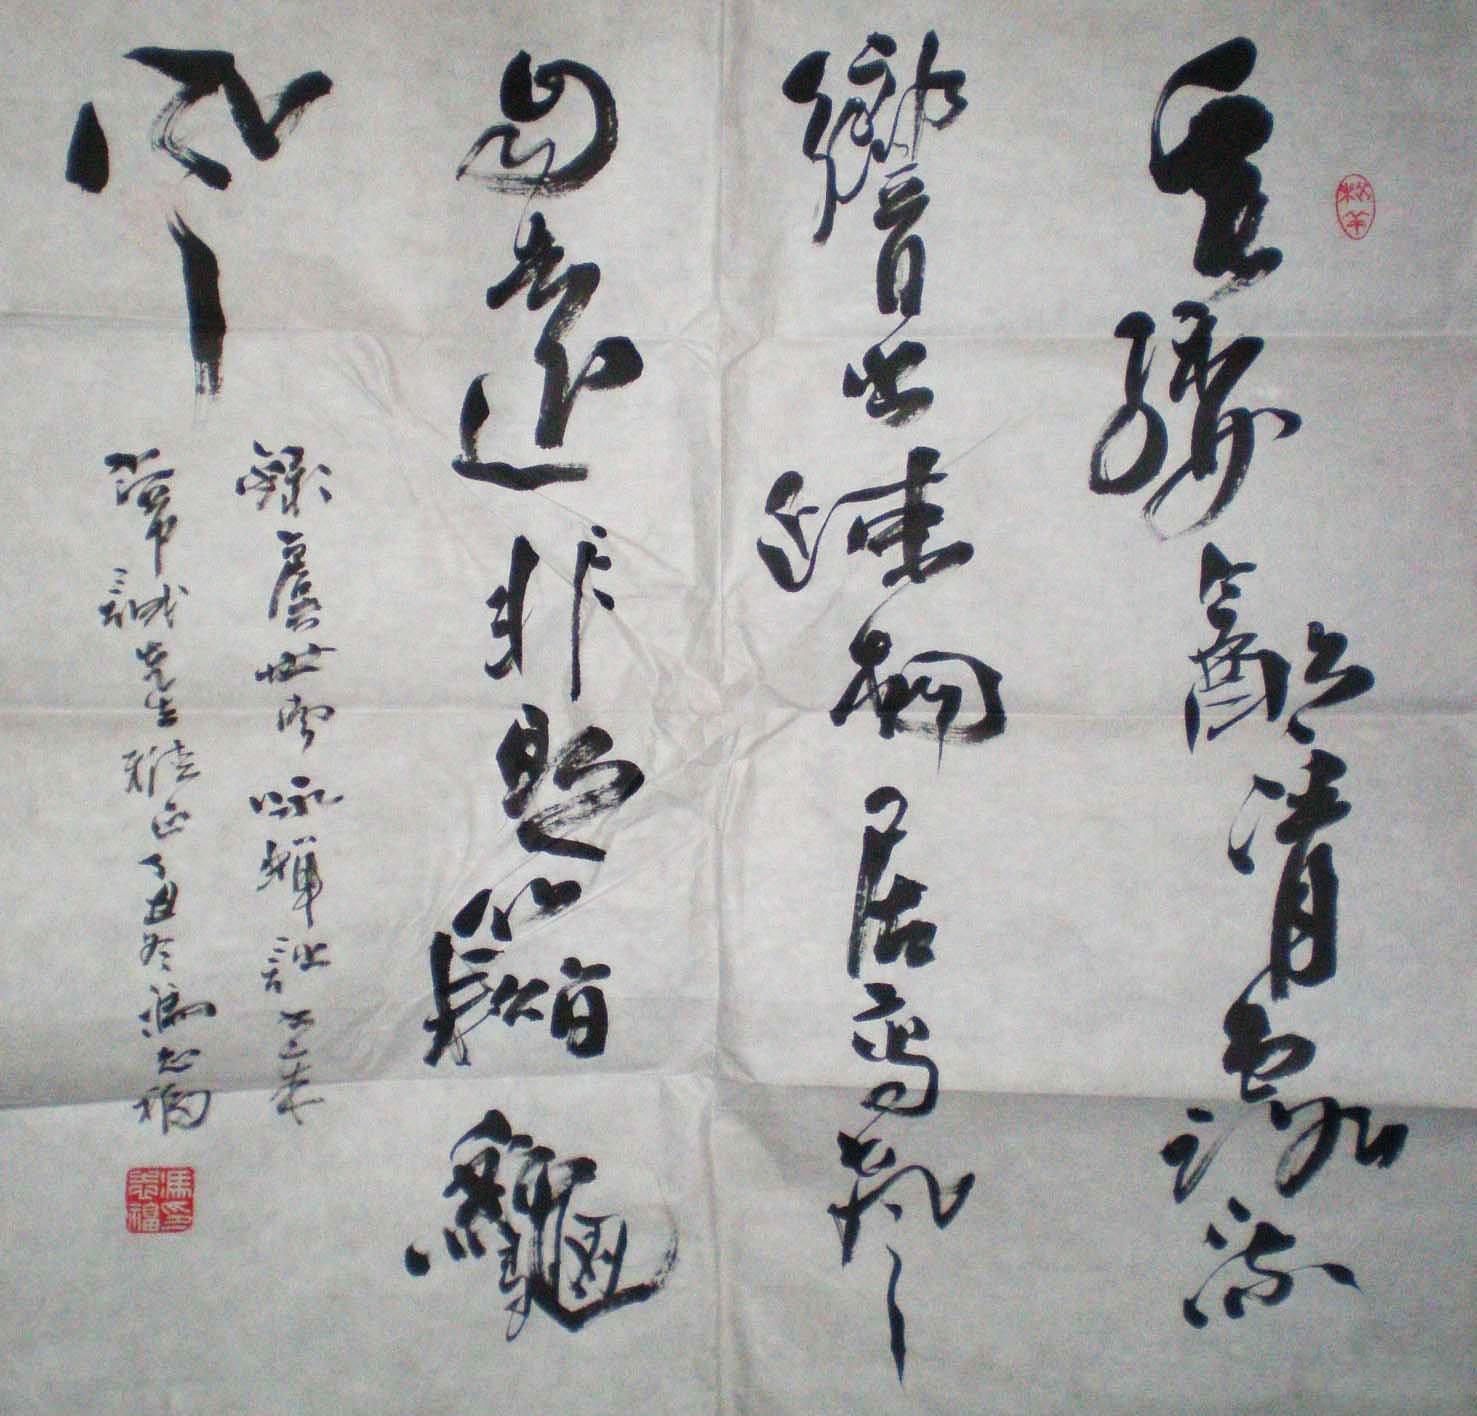 垂緌飲清露流
響出疏桐居高聲
自遠非是藉秋
風
錄虞世南咏蟬詩一首
常誠先生雅正丁丑冬馮忠福